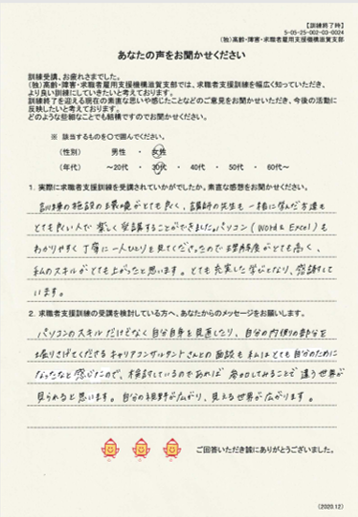 【訓練終了時】
5-05-25-002-03-0024
(独)高齢・障害・求職者雇用支援機構滋賀支部
あなたの声をお聞かせください
訓練受講、お疲れさまでした。
(独)高齢・障害・求職者雇用支援機構滋賀支部では、求職者支援訓練を幅広く知っていただき、
より良い訓練にしていきたいと考えております。
訓練終了を迎える現在の素直な思いや感じたことなどのご意見をお聞かせいただき、今後の活動に
反映したいと考えております。
どのような些細なことでも結構ですのでお聞かせください。
※ 該当するものを○で囲んでください。
(性別) 男性 ・ 女性
(年代) ～20代 ・ 30代 ・ 40代 ・ 50代 ・ 60代～
1. 実際に求職者支援訓練を受講されていかがでしたか。素直な感想をお聞かせください。
訓練の施設の環境がとても良く、講師の先生も一緒に学んだ方達も
とても良い人で楽しく受講することができました。パソコン(Word & Excel)も
わかりやすく丁寧に一人ひとりを見てくださったので理解度がとても高く、
私のスキルがとても上がったと思います。とても充実した学びとなり、感謝して
います。
2. 求職者支援訓練の受講を検討している方へ、あなたからのメッセージをお願いします。
パソコンのスキルだけでなく自分自身を見直したり、自分の内側の部分を
掘りさげてくださるキャリアコンサルタントさんとの面談も私にはとても自分のために
なったなと感じたので、検討しているのであれば 参加してみることで違う世界が
見られると思います。自分の視野が広がり、見える世界が広がります。
ご回答いただき誠にありがとうございました。
(2020.12)